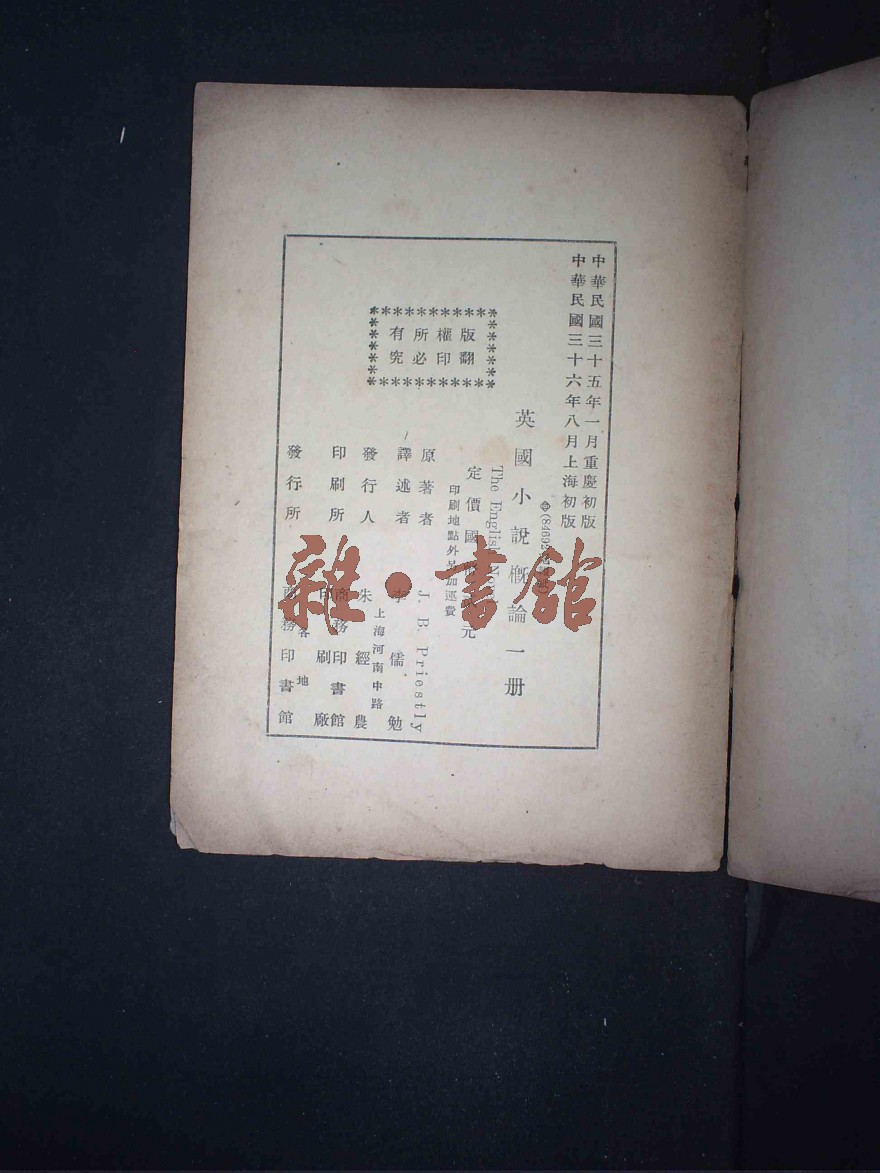 中華民國三十五年一月重慶初版
中華民國三十六年八月上海初版
英國小說概論一册
The English
定價國 元
印刷地點外另加運費
版權所有
翻印必究
原著者 J. B. Priestly
譯述者 李儒勉
發行人 朱經農
上海河南中路
印刷所 商務印書館
印刷廠
發行所 商務印書館
各地
雜·書館